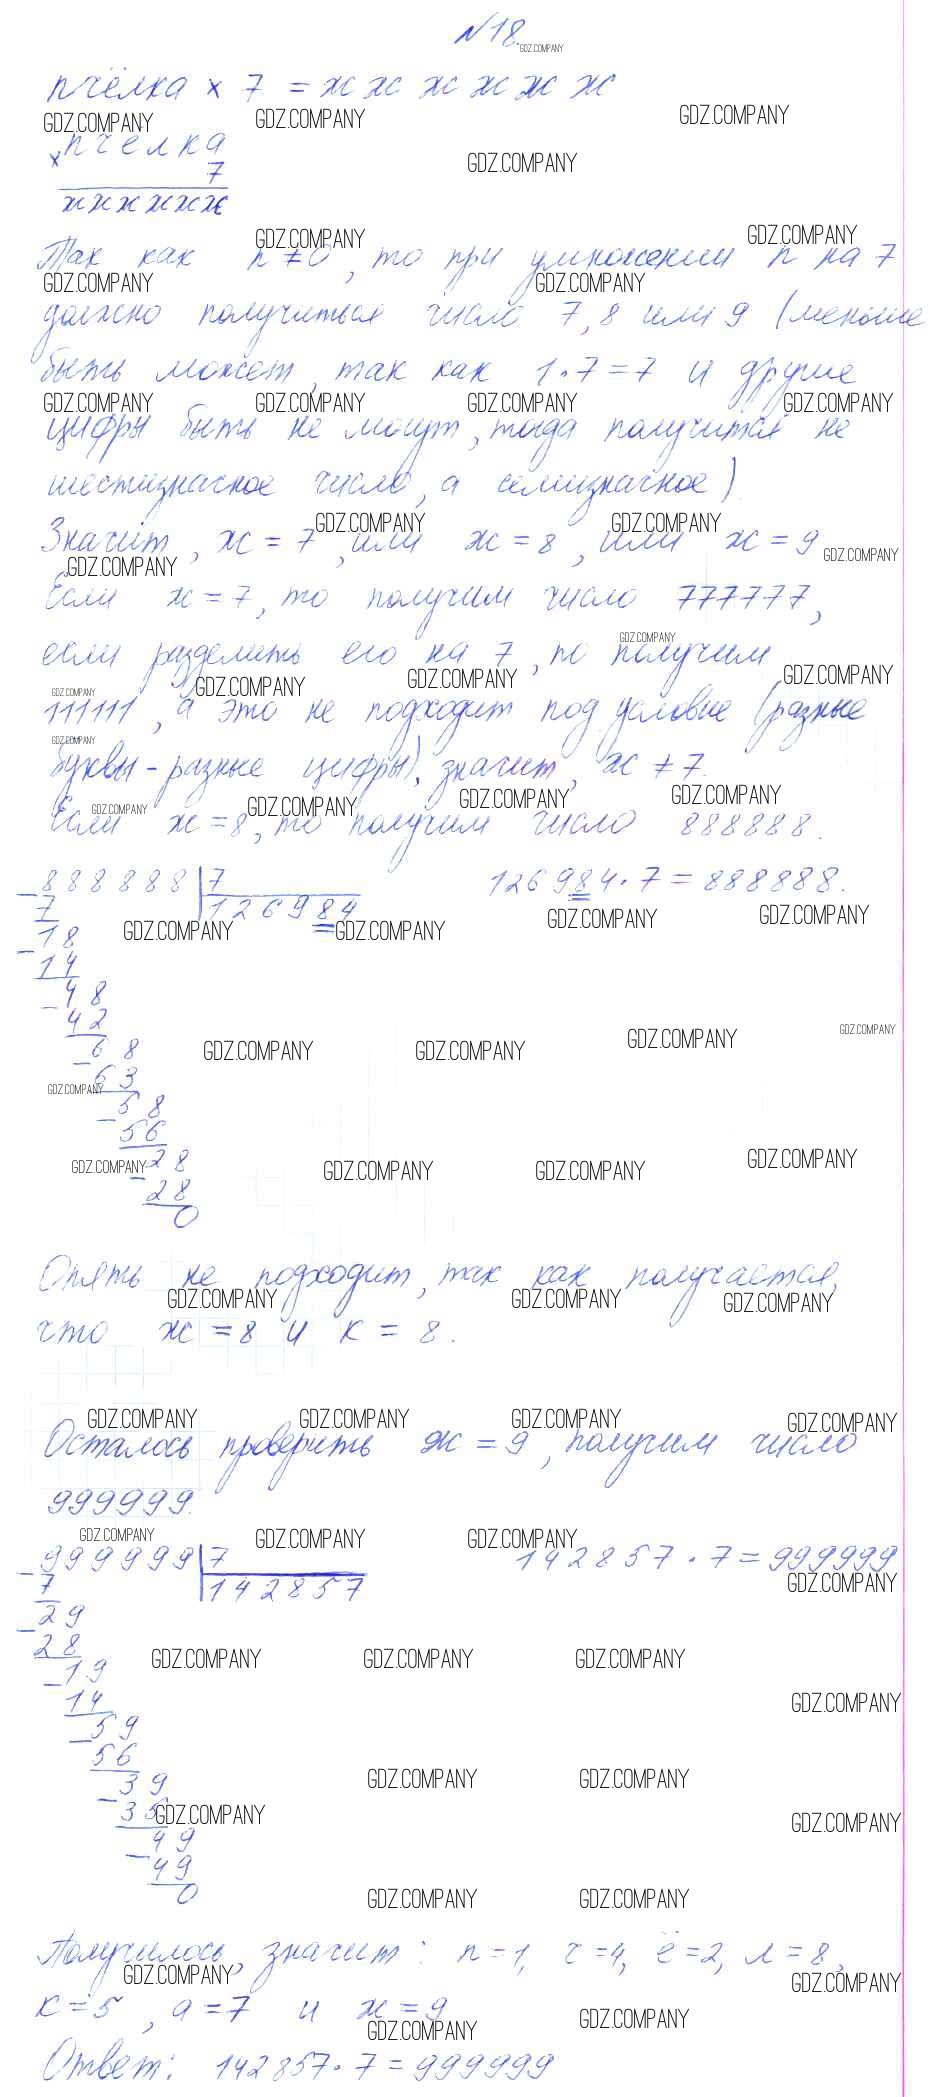 №18.
пчёлка × 7 = ж ж ж ж ж ж
× пчёлка
7
жжжжжж
Так как п ≠ 0, то при умножении п на 7
должно получиться число 7, 8 или 9 (меньше
быть может, так как 1·7=7 и другие
цифры быть не могут, тогда получится не
шестизначное число, а семизначное)
Значит, ж = 7, или ж = 8, или ж = 9
Если ж = 7, то получим число 777777,
если разделить его на 7, то получим
111111, а это не подходит под условие (разные
буквы - разные цифры), значит, ж ≠ 7.
Если ж = 8, то получим число 888888.
- 888888 | 7
7 | 126984
126984 · 7 = 888888.
- 18
14
- 48
42
- 68
63
- 58
56
- 28
28
0
Опять не подходит, так как получается,
что ж = 8 и к = 8.
Осталось проверить ж = 9, получим число
999999.
- 999999 | 7
7 | 142857
142857 · 7 = 999999
- 29
28
- 19
14
- 59
56
- 39
35
- 49
49
0
Получилось, значит: п = 1, ч = 4, ё = 2, л = 8,
к = 5, а = 7 и ж = 9
Ответ: 142857 · 7 = 999999
GDZ.COMPANY